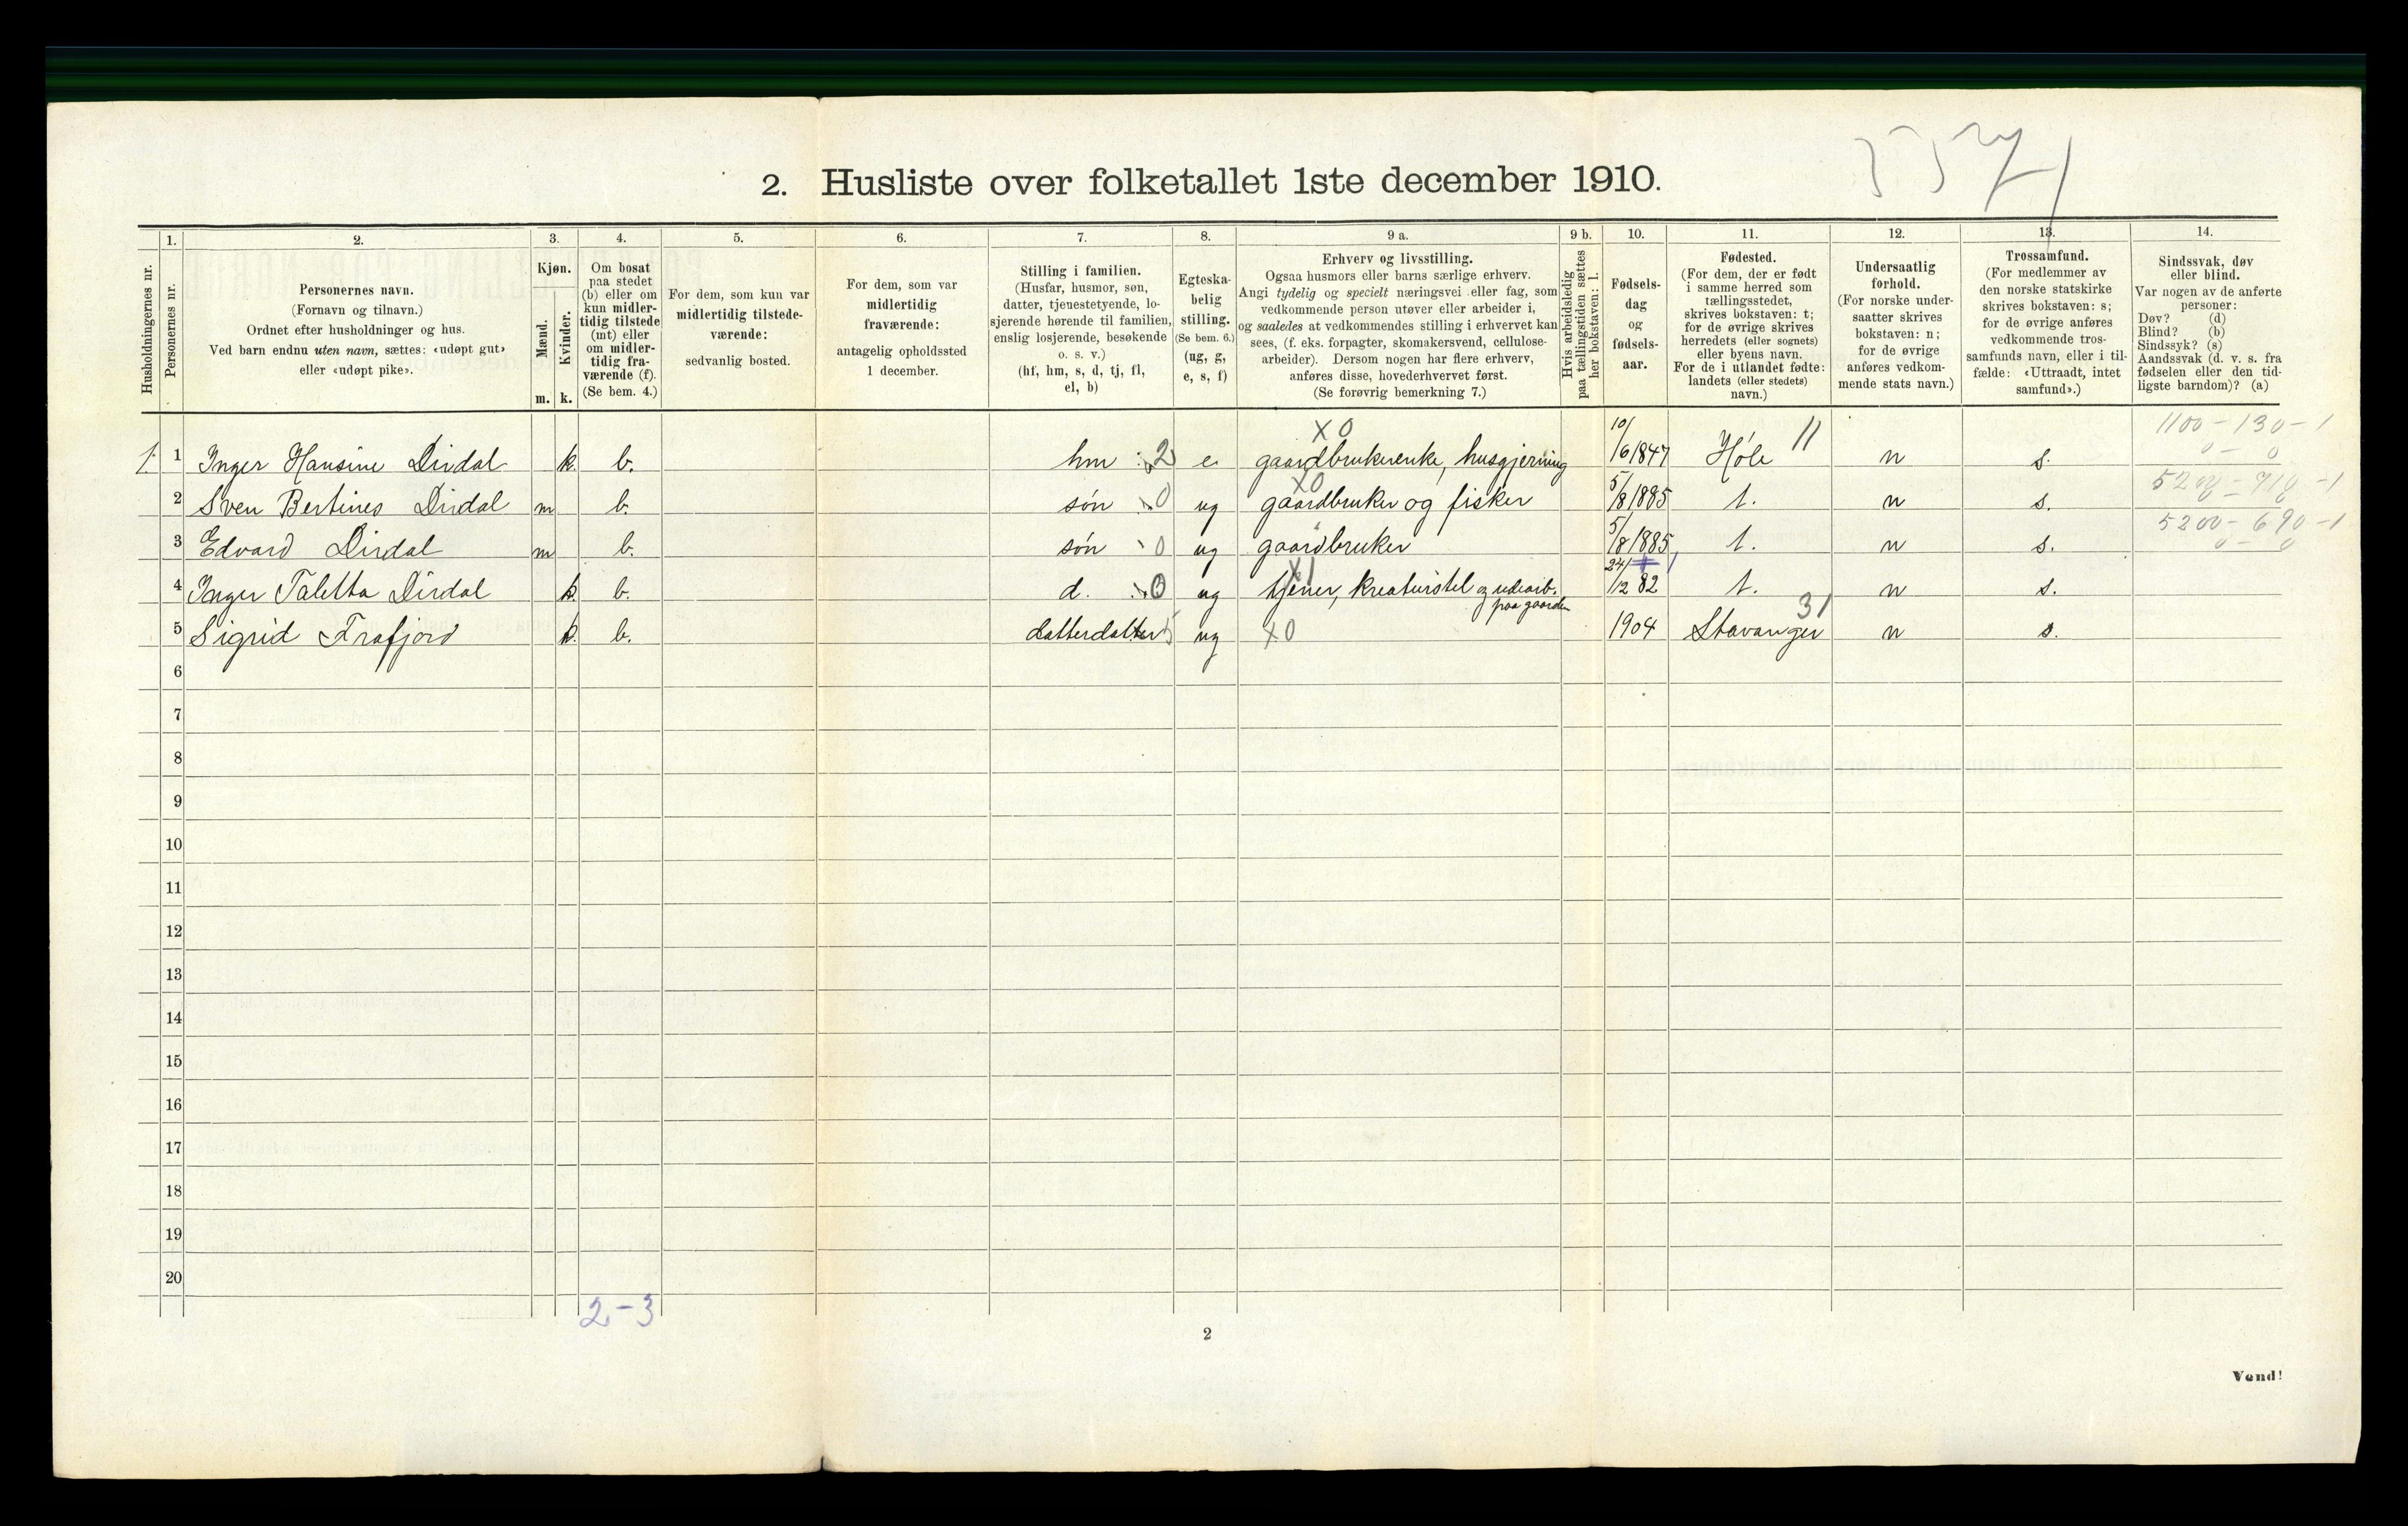 5571
2. Husliste over folketallet 1ste december 1910.
Husholdningernes nr.
1.
Personernes nr.
2.
Personernes navn.
(Fornavn og tilnavn.)
Ordnet efter husholdninger og hus.
Ved barn endnu uten navn, sættes: «udøpt gut»
eller «udøpt pike».
3.
Kjøn.
Mænd.
Kvinder.
m. k.
4.
Om bosat
paa stedet
(b) eller om
kun midler-
tidig tilstede
(mt) eller
om midler-
tidig fra-
værende (f).
(Se bem. 4.)
5.
For dem, som kun var
midlertidig tilstede-
værende:
sedvanlig bosted.
6.
For dem, som var
midlertidig
fraværende:
antagelig opholdssted
1 december.
7.
Stilling i familien.
(Husfar, husmor, søn,
datter, tjenestetyende, lo-
sjerende hørende til familien,
enslig losjerende, besøkende
o. s. v.)
(hf, hm, s, d, tj, fl,
el, b)
8.
Egteska-
belig
stilling.
(Se bem. 6.)
(ug, g,
e, s, f)
9 a.
Erhverv og livsstilling.
Ogsaa husmors eller barns særlige erhverv.
Angi tydelig og specielt næringsvei eller fag, som
vedkommende person utøver eller arbeider i,
og saaledes at vedkommendes stilling i erhvervet kan
sees, (f. eks. forpagter, skomakersvend, cellulose-
arbeider). Dersom nogen har flere erhverv,
anføres disse, hovederhvervet først.
(Se forøvrig bemerkning 7.)
9 b.
Hvis arbeidsledig
paa tællingstiden sættes
her bokstaven: l.
10.
Fødsels-
dag
og
fødsels-
aar.
11.
Fødested.
(For dem, der er født
i samme herred som
tællingsstedet,
skrives bokstaven: t;
for de øvrige skrives
herredets (eller sognets)
eller byens navn.
For de i utlandet fødte:
landets (eller stedets)
navn.)
12.
Undersaatlig
forhold.
(For norske under-
saatter skrives
bokstaven: n;
for de øvrige
anføres vedkom-
mende stats navn.)
13.
Trossamfund.
(For medlemmer av
den norske statskirke
skrives bokstaven: s;
for de øvrige anføres
vedkommende tros-
samfunds navn, eller i til-
fælde: «Uttraadt, intet
samfund».)
14.
Sindssvak, døv
eller blind.
Var nogen av de anførte
personer:
Døv? (d)
Blind? (b)
Sindssyk? (s)
Aandssvak (d. v. s. fra
fødselen eller den tid-
ligste barndom)? (a)
X0 1100 - 130 - 1
1 1 Inger Hansine Dirdal k. b. hm 2 e. gaardbrukerenke, husgjerning 10/6 1847 Høle 11 n s. 0 - 0
X0
2 Sven Bertines Dirdal m b. søn 0 ug gaardbruker og fisker 5/8 1885 t. n s.
5200 - 690 - 1
3 Edvard Dirdal m b. søn 0 ug gaardbruker 5/8 1885 t. n s. 0 - 0
X1
4 Inger Taletta Dirdal k. b. d. 0 ug tjener, kreaturstel og udearb. 24/12 82 t. n s.
paa gaarden
5 Sigrid Frafjord k. b. datterdatter 5 ug X0 1904 Stavanger 31 n s.
6
7
8
9
10
11
12
13
14
15
16
17
18
19
20
2-3
2
Vend!